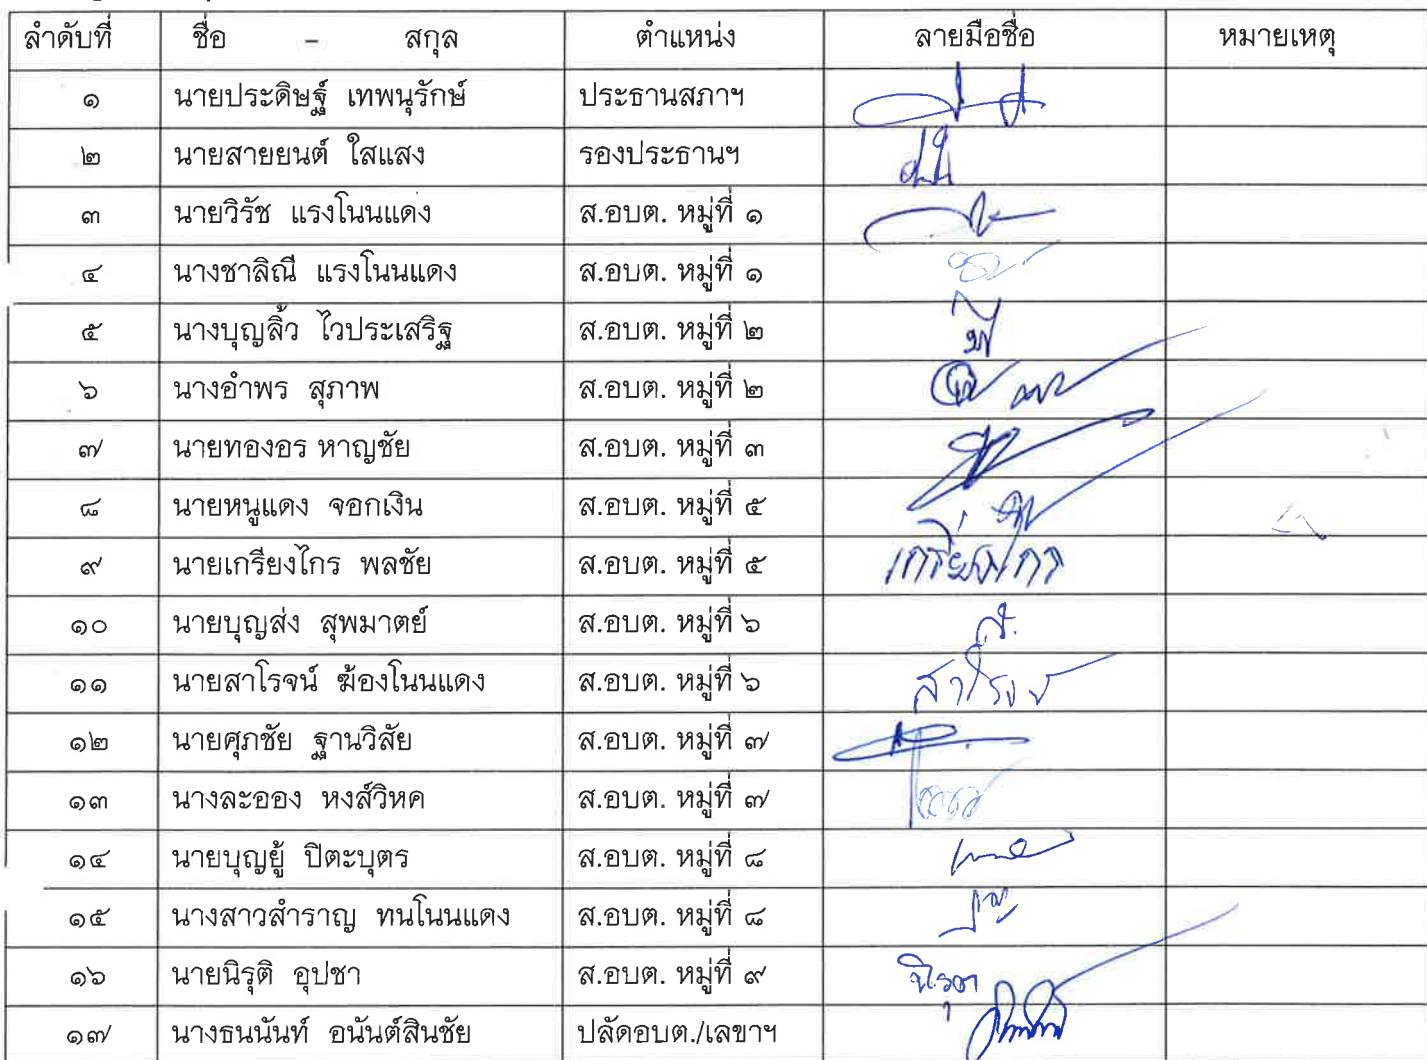 ลำดับที่ ชื่อ - สกุล ตำแหน่ง ลายมือชื่อ หมายเหตุ
๑ นายประดิษฐ์ เทพนุรักษ์ ประธานสภาฯ
๒ นายสายยนต์ ใสแสง รองประธานฯ
๓ นายวิรัช แรงโนนแดง ส.อบต. หมู่ที่ ๑
๔ นางชาลิณี แรงโนนแดง ส.อบต. หมู่ที่ ๑
๕ นางบุญลิ้ว ไวประเสริฐ ส.อบต. หมู่ที่ ๒
๖ นางอำพร สุภาพ ส.อบต. หมู่ที่ ๒
๗ นายทองอร หาญชัย ส.อบต. หมู่ที่ ๓
๘ นายหนูแดง จอกเงิน ส.อบต. หมู่ที่ ๕
๙ นายเกรียงไกร พลชัย ส.อบต. หมู่ที่ ๕ เกรียงไกร
๑๐ นายบุญส่ง สุพมาตย์ ส.อบต. หมู่ที่ ๖
๑๑ นายสาโรจน์ ฆ้องโนนแดง ส.อบต. หมู่ที่ ๖ สาโรจน์
๑๒ นายศุภชัย ฐานวิสัย ส.อบต. หมู่ที่ ๗
๑๓ นางละออง หงส์วิหค ส.อบต. หมู่ที่ ๗
๑๔ นายบุญยู้ ปิตะบุตร ส.อบต. หมู่ที่ ๘
๑๕ นางสาวสำราญ ทนโนนแดง ส.อบต. หมู่ที่ ๘
๑๖ นายนิรุติ อุปชา ส.อบต. หมู่ที่ ๙
๑๗ นางธนนันท์ อนันต์สินชัย ปลัดอบต./เลขาฯ